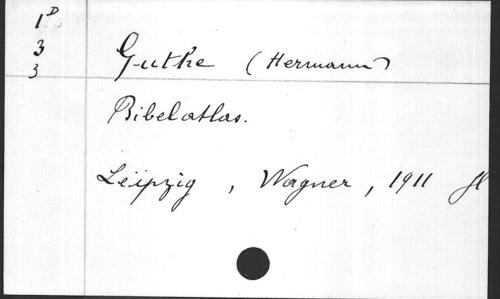 1D
3
3
Guthe (Hermann)
Bibelatlas.
Leipzig, Wagner, 1911